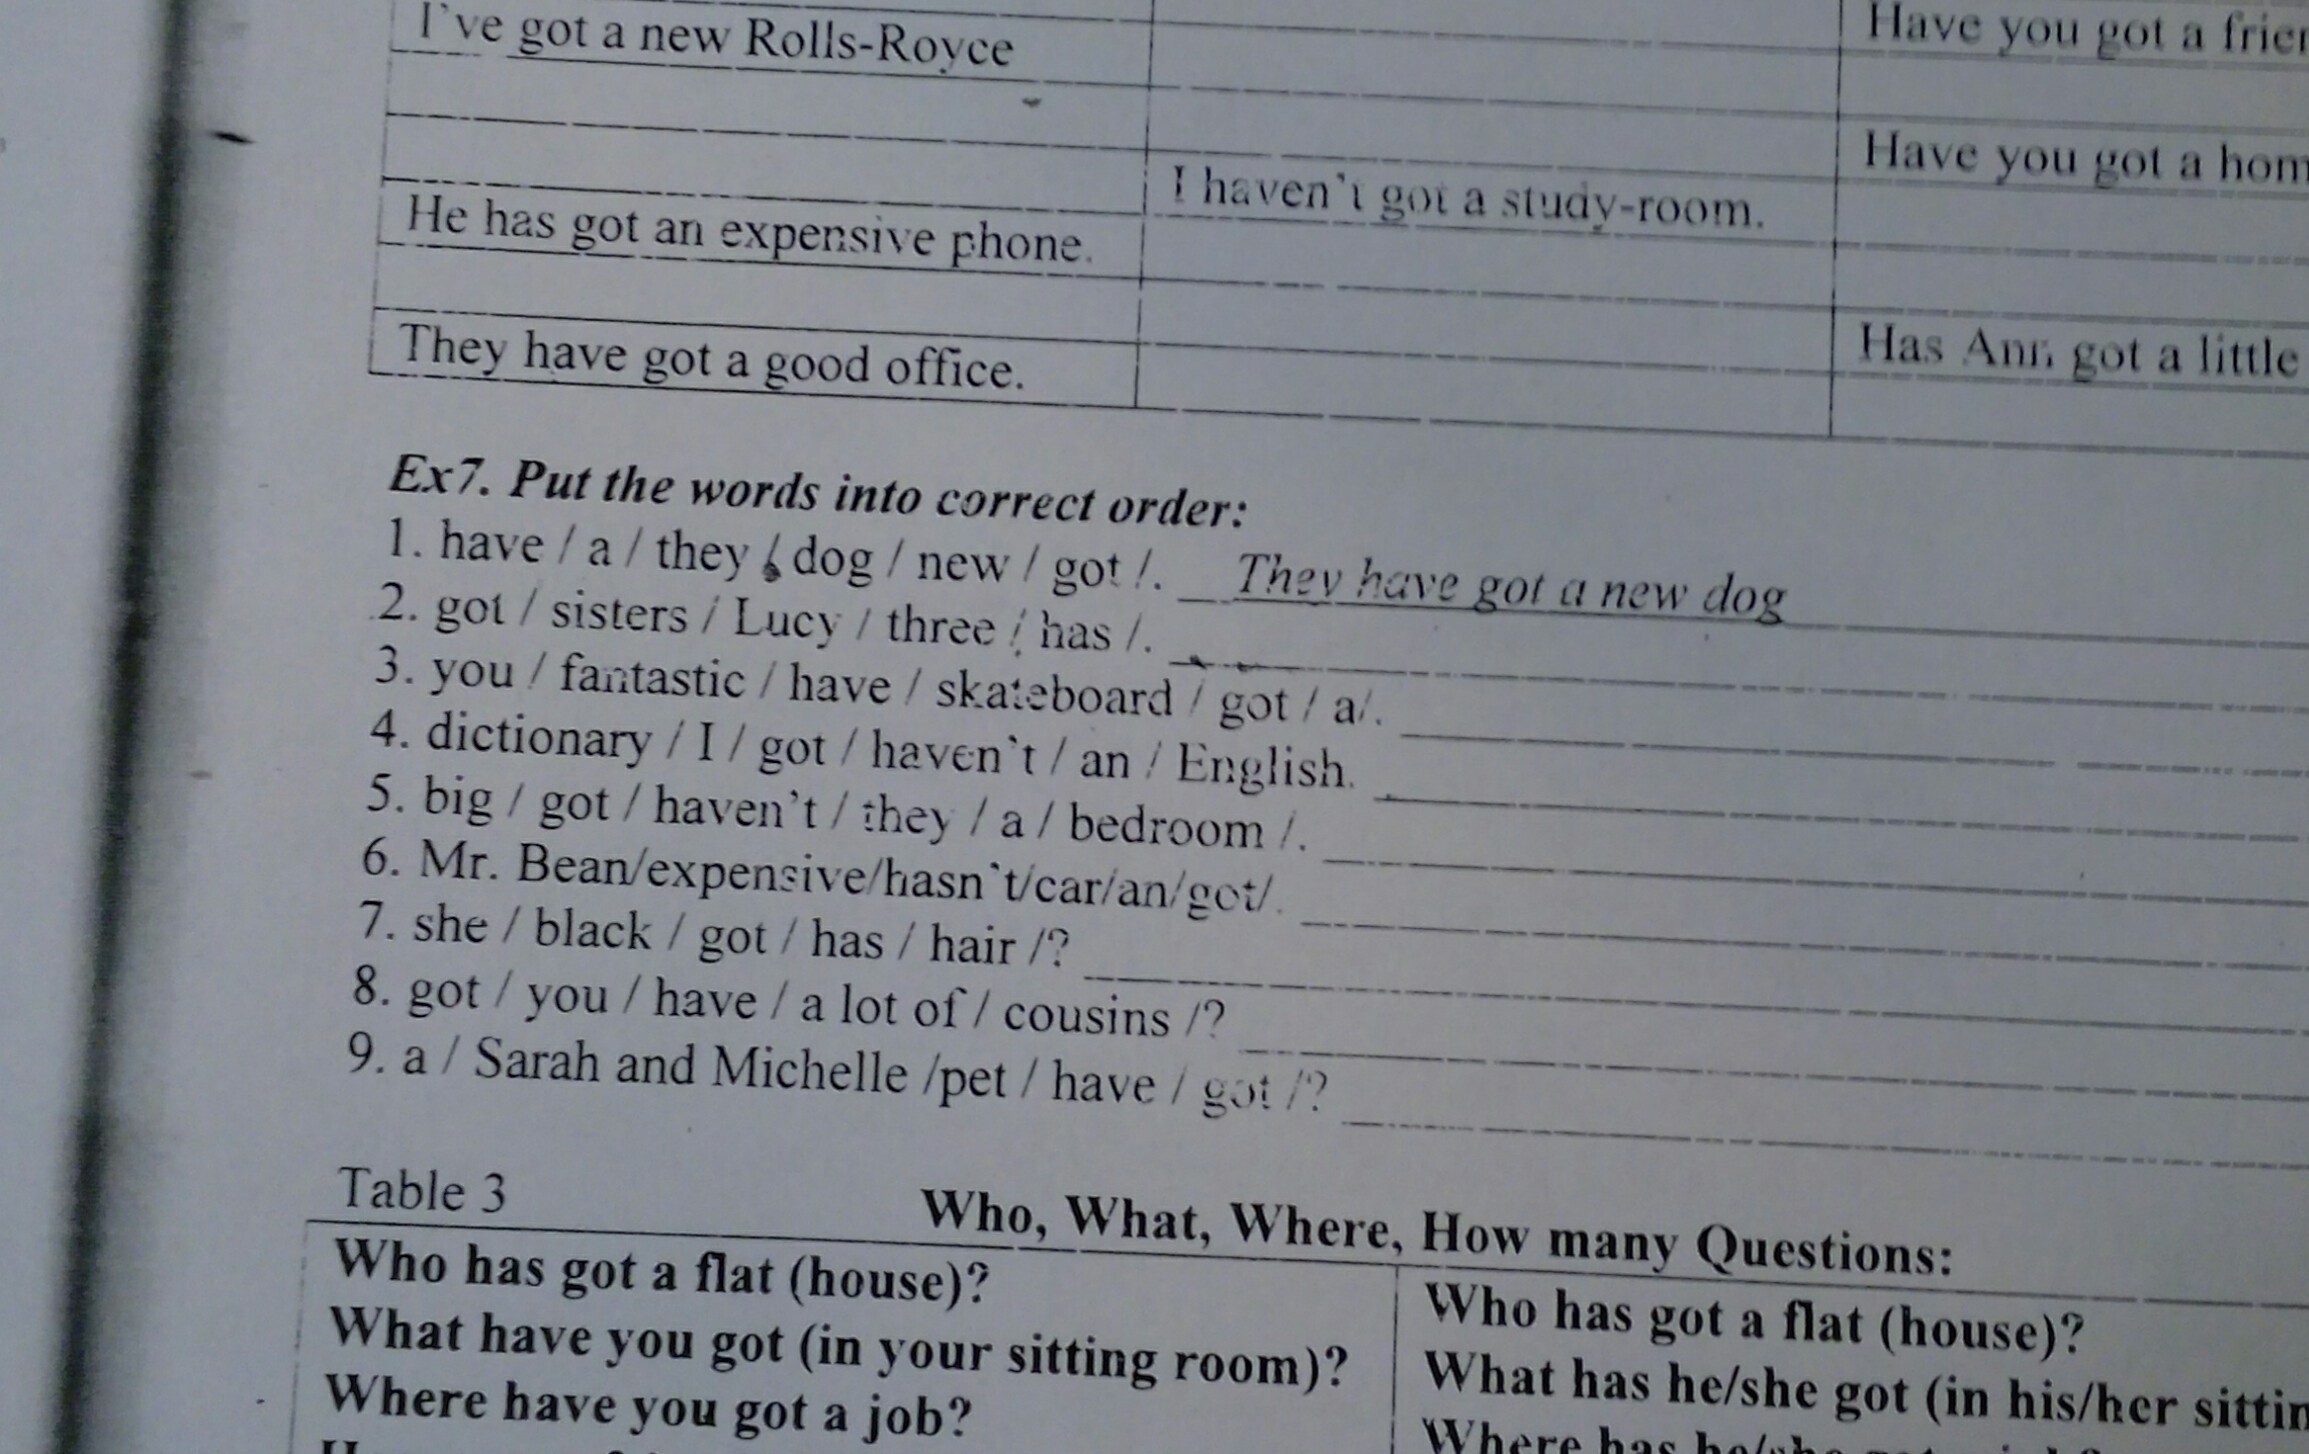 I've got a new Rolls-Royce
Have you got a
Have you got a
I haven't got a study-room.
He has got an expensive phone.
They have got a good office.
Has Ann got a little
Ex7. Put the words into correct order:
1. have / a / they / dog / new / got /. They have got a new dog
2. got / sisters / Lucy / three / has /.
3. you / fantastic / have / skateboard / got / a/.
4. dictionary / I / got / haven't / an / English.
5. big / got / haven't / they / a / bedroom /.
6. Mr. Bean/expensive/hasn't/car/an/got/.
7. she / black / got / has / hair /?
8. got / you / have / a lot of / cousins /?
9. a / Sarah and Michelle /pet / have / got /?
Table 3
Who, What, Where, How many Questions:
Who has got a flat (house)?
What have you got (in your sitting room)?
Where have you got a job?
Who has got a flat (house)?
What has he/she got (in his/her
Where has he/she